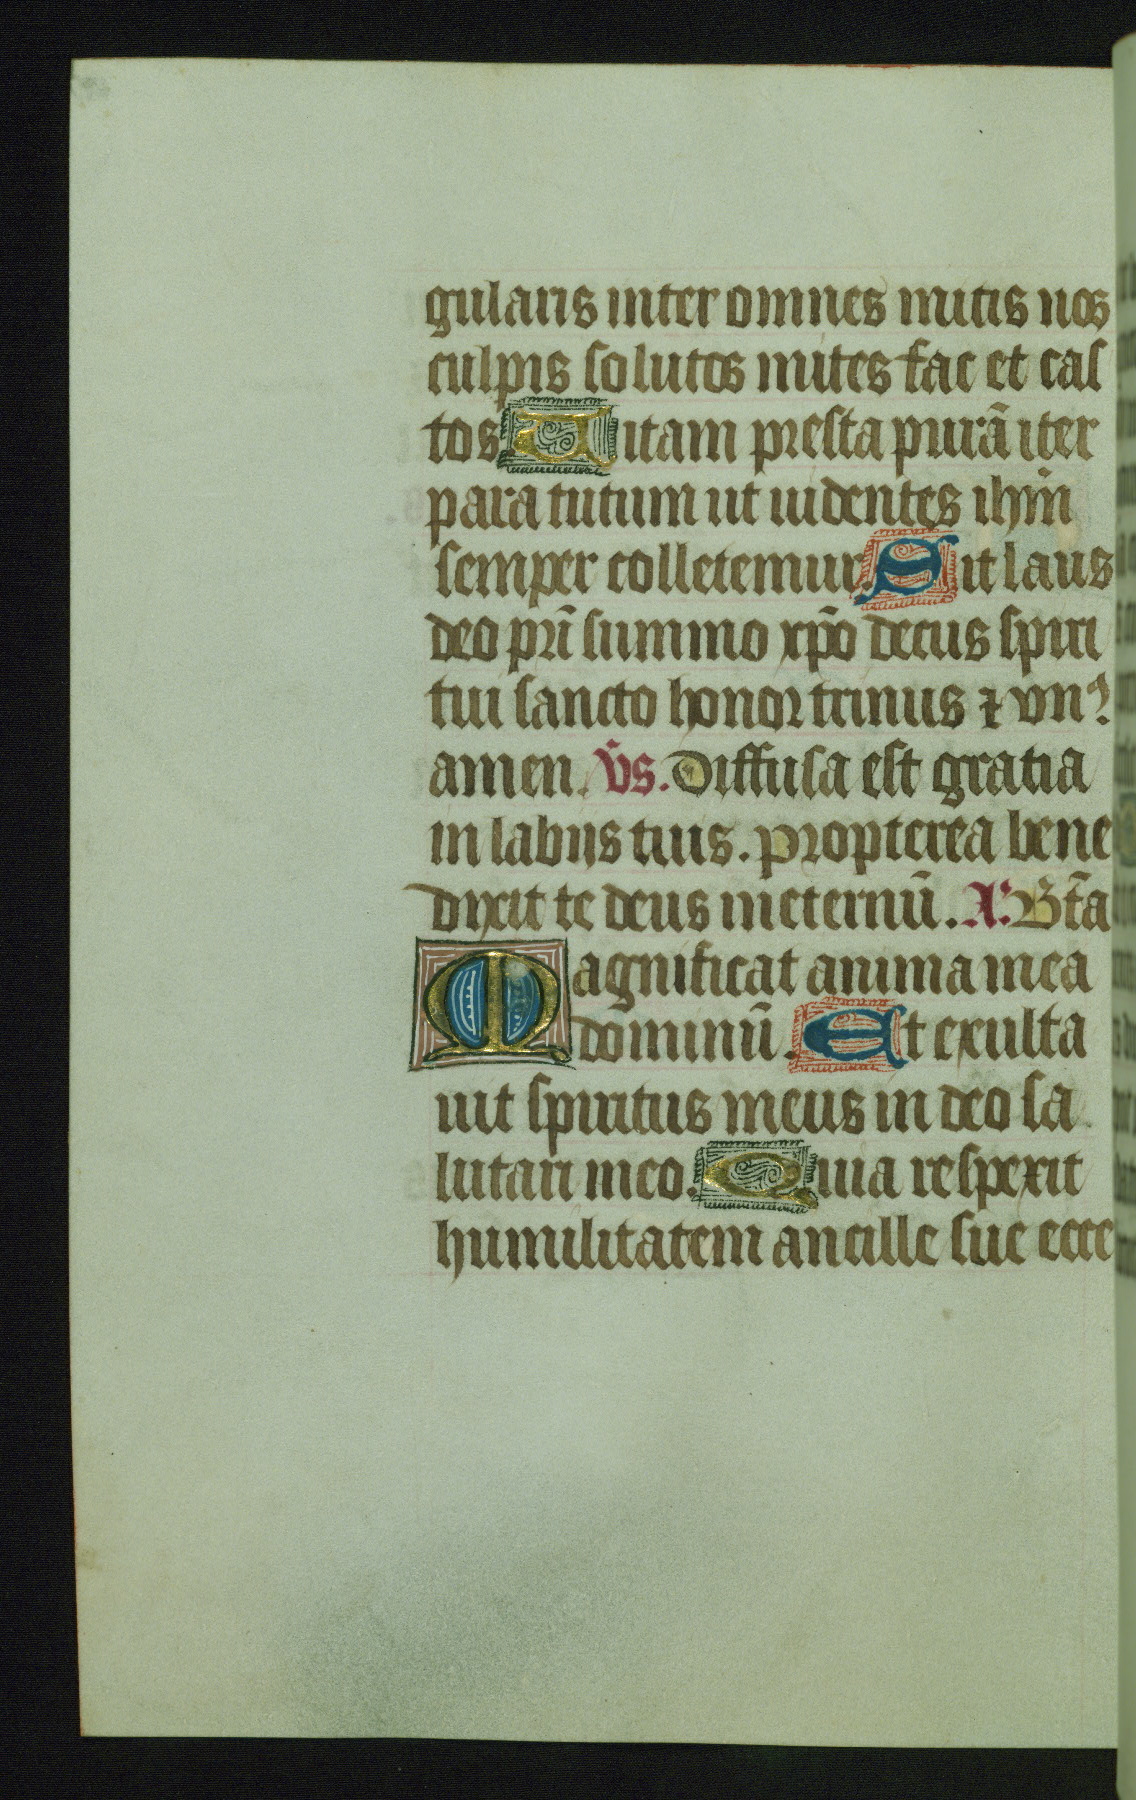 gularis inter omnes mitis nos
culpis solutos mites fac et cas
tos Uitam presta purã iter
para tutum ut uidentes ihm̃
semper colletemur. Sit laus
deo pr̃i summo xp̃o decus spiri
tui sancto honor trinus ⁊ vnꝰ.
amen. v̄s. Diffusa est gratia
in labiis tuis. propterea bene
dixit te deus ineternũ. Aꝰ. Bt̃a
Magnificat anima mea
dominũ. Et exulta
uit spiritus meus in deo sa
lutari meo. Quia respexit
humilitatem ancille sue ecce